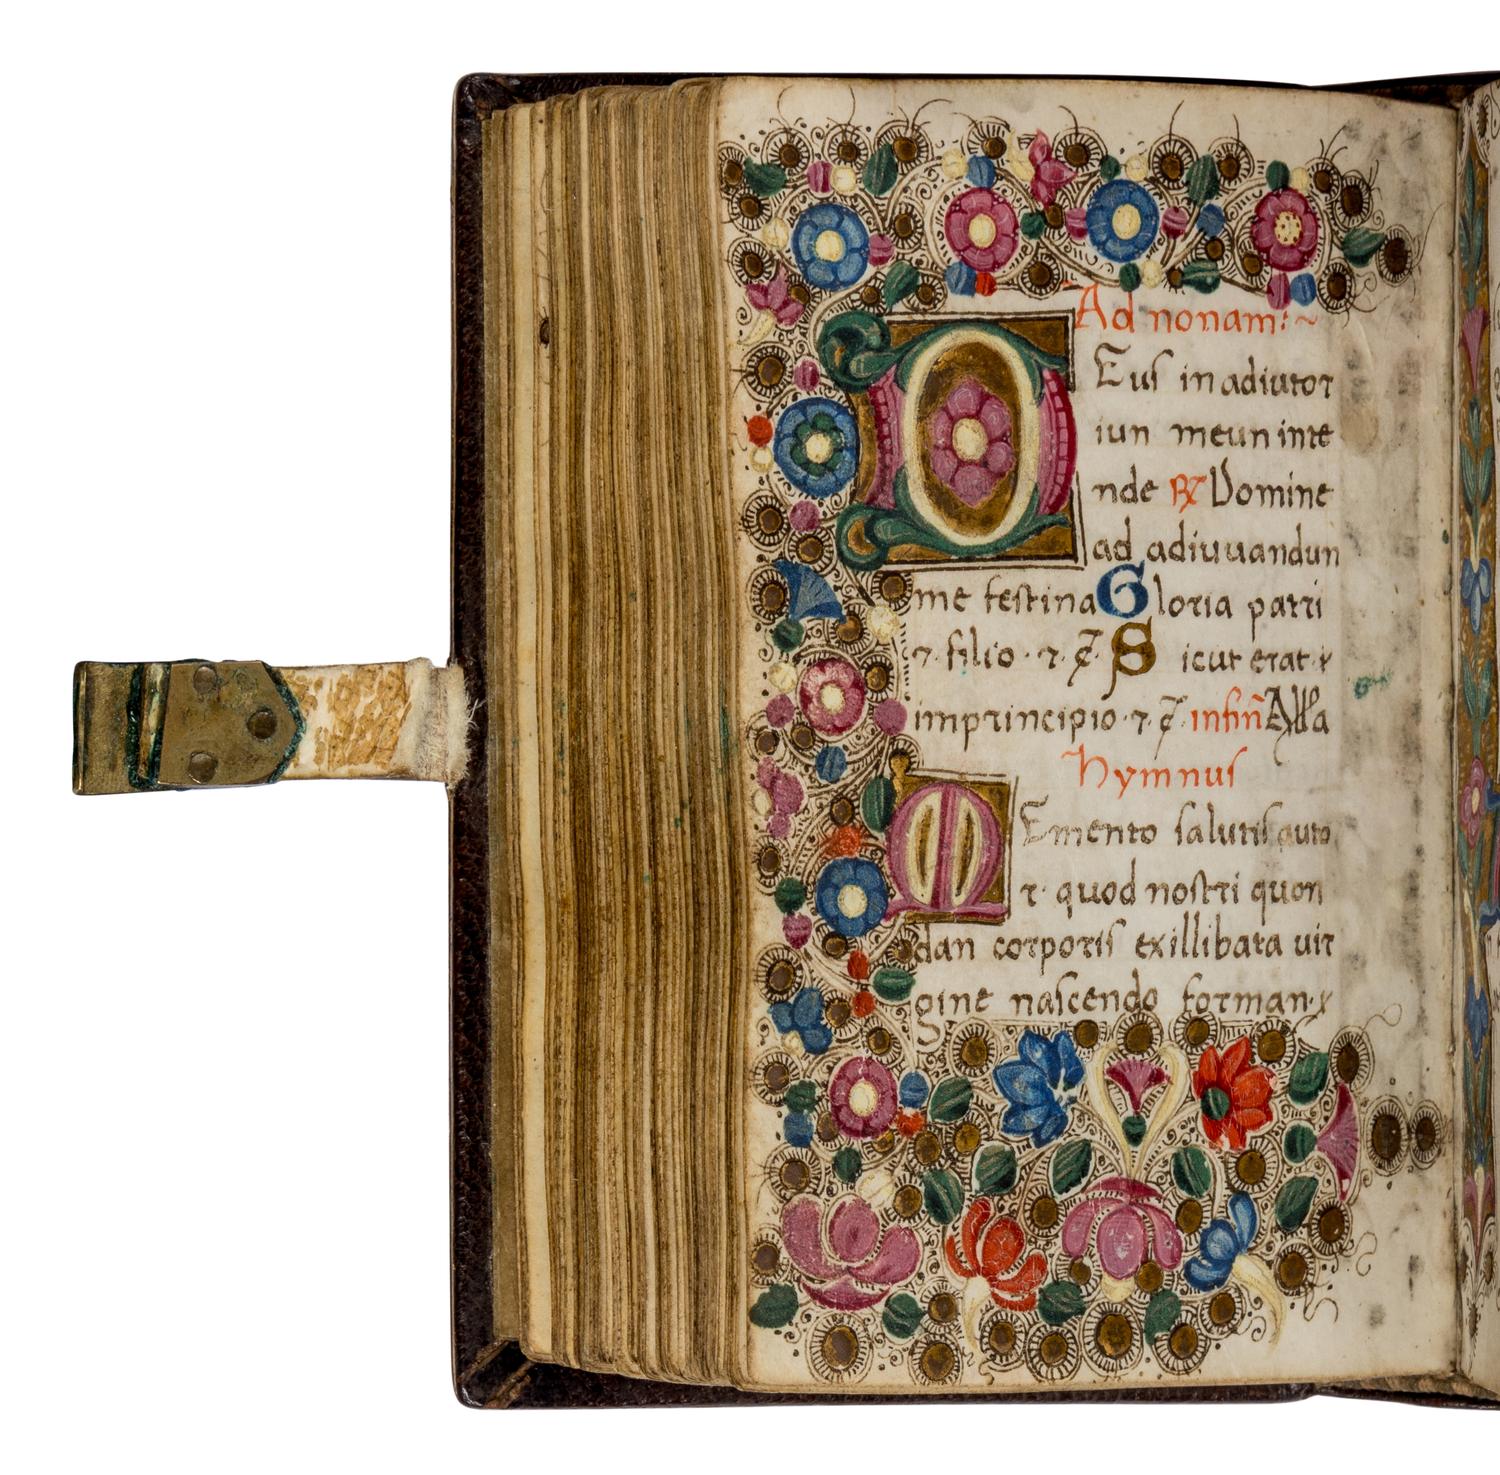 Ad nonam:~
DEus in adiutor
iun meun inte
nde ℟ Domine
ad adiuuandun
me festina Gloria patri
⁊ filio · ⁊ c̃ · Sicut erat ⁊
im principio · ⁊ c̃ · in fiñ Alla
hymnus
MEmento salutis auto
r · quod nostri quon
dan corporis ex illibata uir
gine nascendo forman ⁊